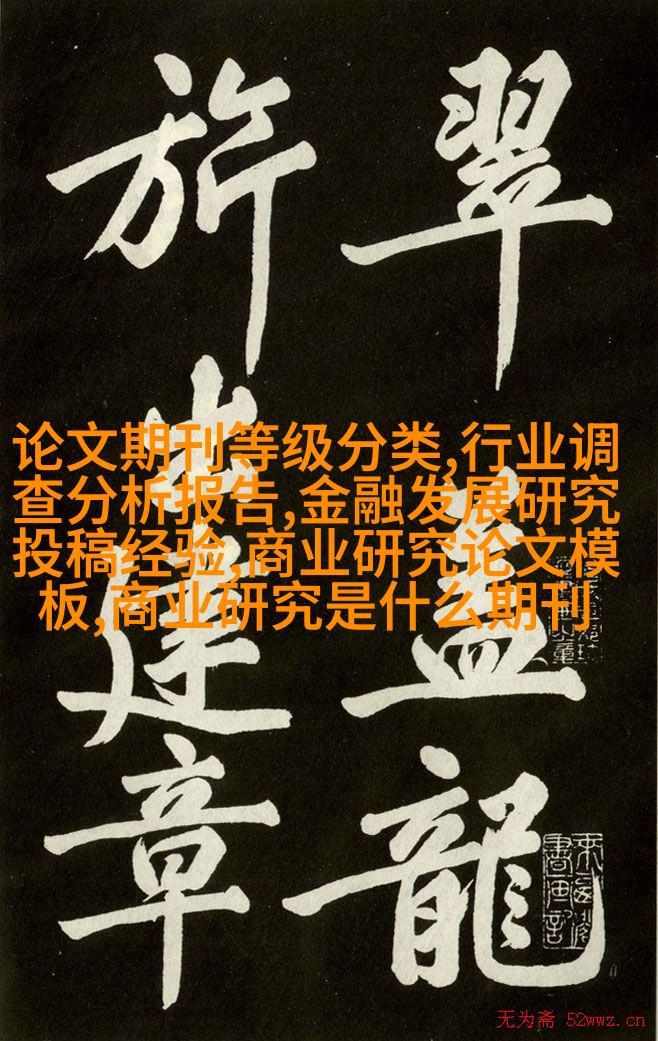 翠盖龍
旂出建章
论文期刊等级分类,行业调
查分析报告,金融发展研究
投稿经验,商业研究论文模
板,商业研究是什么期刊
无为斋 52wwz.cn